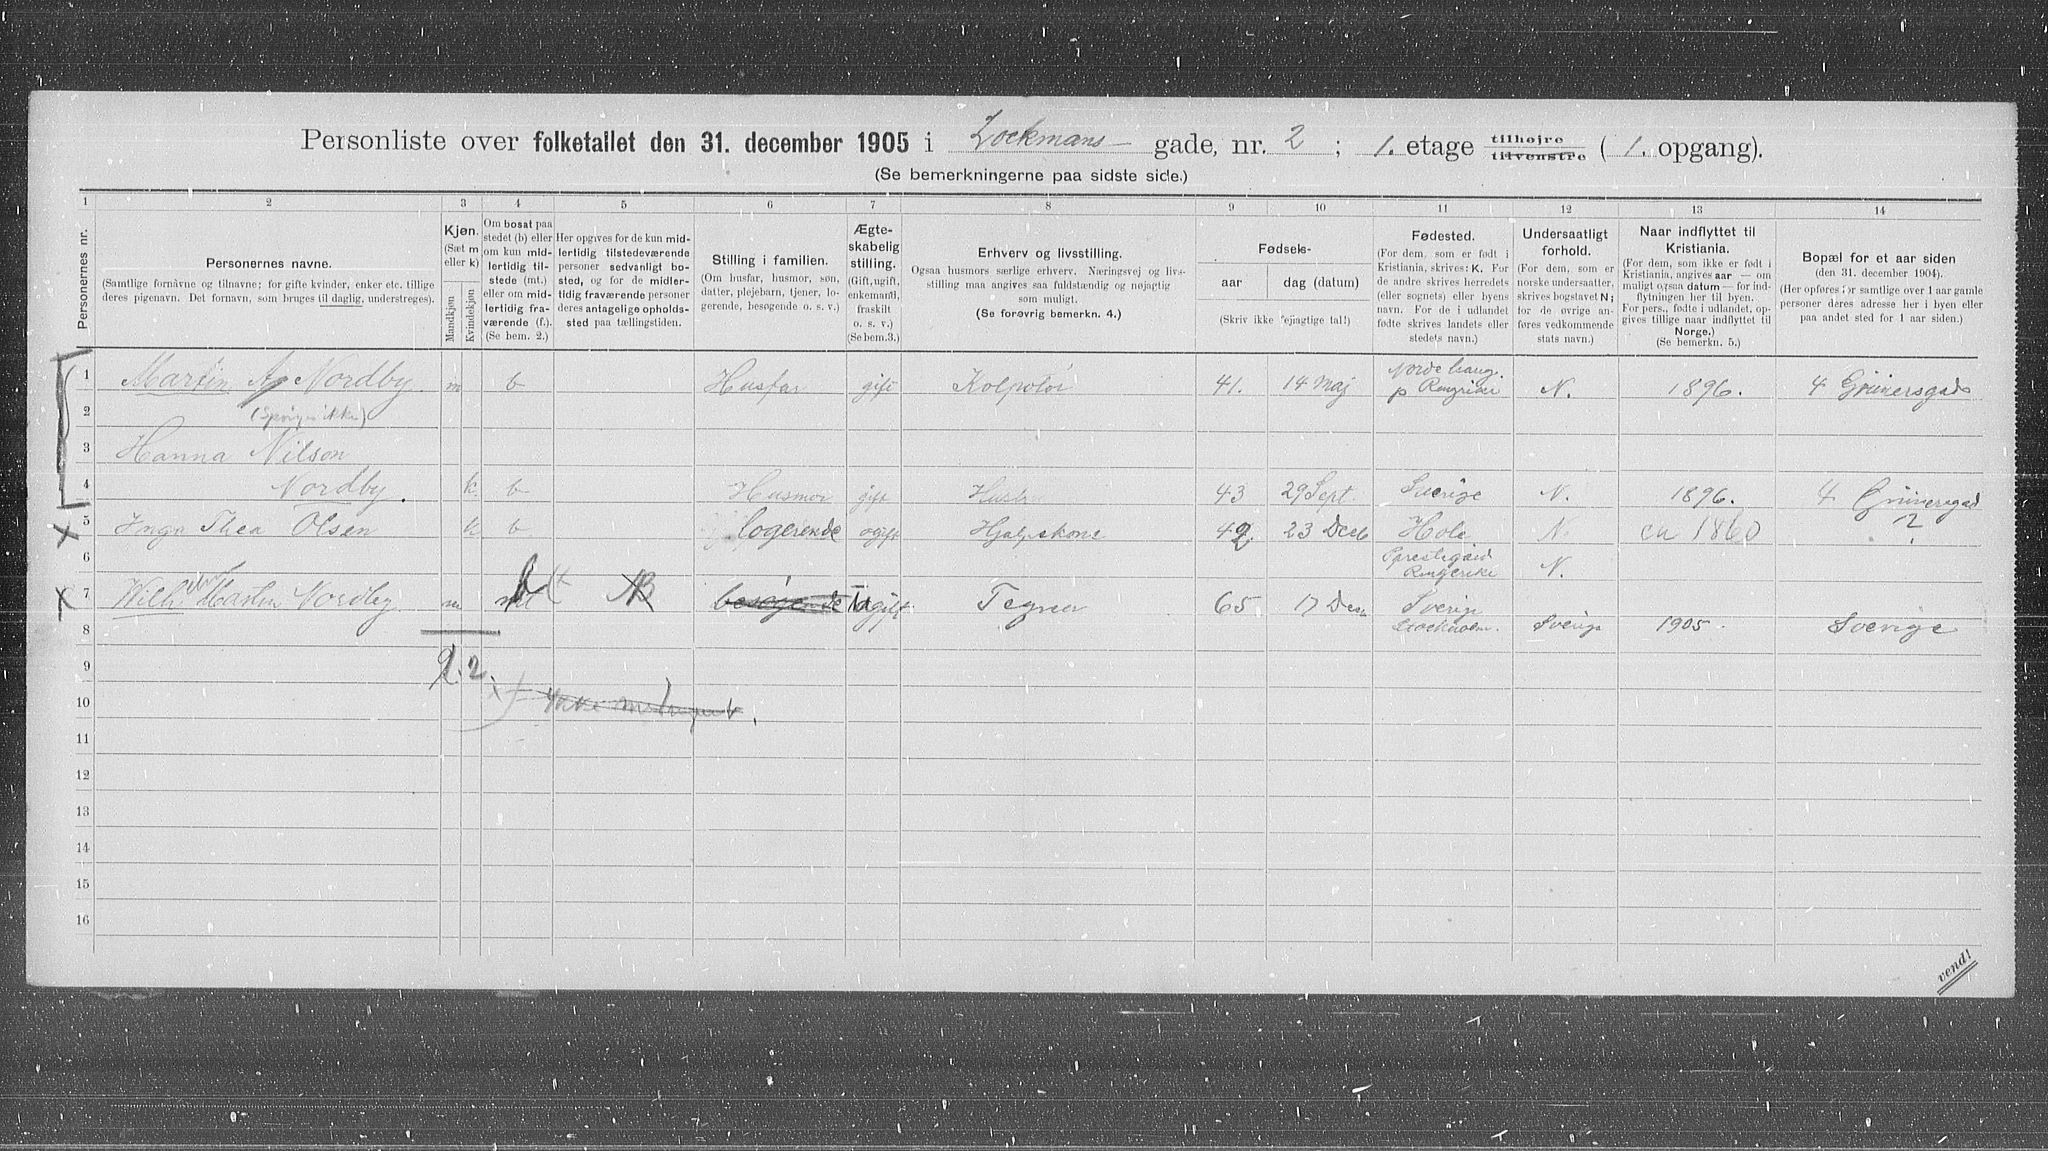 Personliste over folketallet den 31. december 1905 i Zockmans- gade, nr. 2 ; 1. etage tilhøjre tilvenstre ( 1. opgang).
(Se bemerkningerne paa sidste side.)
1 2 3 4 5 6 7 8 9 10 11 12 13 14
Personernes nr.
Personernes navne.
(Samtlige fornavne og tilnavne; for gifte kvinder, enker etc. tillige
deres pigenavn. Det fornavn, som bruges til daglig, understreges).
Kjøn.
(Sæt m
eller k)
Mandkjøn
Kvindekjøn
Om bosat paa
stedet (b) eller
om kun mid-
lertidig til-
stede (mt.)
eller om mid-
lertidig fra-
værende (f.).
(Se bem. 2.)
Her opgives for de kun mid-
lertidig tilstedeværende
personer sedvanlig bo-
sted, og for de midler-
tidig fraværende personer
deres antagelige opholds-
sted paa tællingstiden.
Stilling i familien.
(Om husfar, husmor, søn,
datter, plejebarn, tjener, lo-
gerende, besøgende o. s. v.)
Ægte-
skabelig
stilling.
(Gift, ugift,
enkemand,
fraskilt
o. s. v.)
(Se bem. 3.)
Erhverv og livsstilling.
Ogsaa husmors særlige erhverv. Næringsvej og livs-
stilling maa angives saa fuldstændig og nøjagtig
som muligt.
(Se forøvrig bemerkn. 4.)
Fødsels-
aar dag (datum)
(Skriv ikke fejlagtige tal!)
Fødested.
(For dem, som er født i
Kristiania, skrives: K. For
de andre skrives herredets
(eller sognets) eller byens
navn. For de i udlandet
fødte skrives landets eller
stedets navn.)
Undersaatligt
forhold.
(For dem, som er
norske undersaatter,
skrives bogstavet N;
for de øvrige an-
føres vedkommende
stats navn.)
Naar indflyttet til
Kristiania.
(For dem, som ikke er født i
Kristiania, angives aar — om
muligt ogsaa datum — for ind-
flytningen her til byen.
For pers., fødte i udlandet, op-
gives tillige naar indflyttet til
Norge.)
(Se bemerkn. 5.)
Bopæl for et aar siden
(den 31. december 1904).
(Her opføres for samtlige over 1 aar gamle
personer deres adresse her i byen eller
paa andet sted for 1 aar siden.)
1 Martin A. Nordby m b Husfar gift 41. 14 Maj Nordehaug p Ringrike N. 1896. 4 Grünersgade
2
3 Hanna Nilson
4 Nordby. k. b Husmor gift 43 29 Sept. Sverige N. 1896. 4 Grünersgad
5 Inga Thea Olsen k b logerende ugift Hjælpskone 42 23 Decb Hole N. ca 1860 ?
6 Prestegaard Ringerike N.
7 Wilh Martin Nordby m mt b besøgende ugift Tegner 65 17 Dec Sverige
8 Stockholm. Sverige 1905. Sverige
9 2.2.
10
11
12
13
14
15
16
vend!